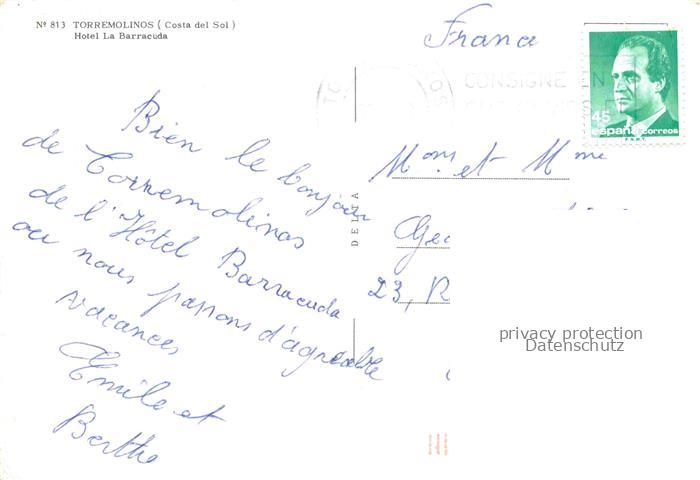 Nº 813 TORREMOLINOS ( Costa del Sol )
Hotel La Barracuda
Bien le bonjour
de Torremolinos
de l'Hôtel Barracuda
ou nous passons d'agreable
vacances
Emile et
Berthe
DELTA
Franc
CONSIGNE EN
45
españa correos
F.N.M.T.
Mom et Mme
Geo
23, R
privacy protection
Datenschutz